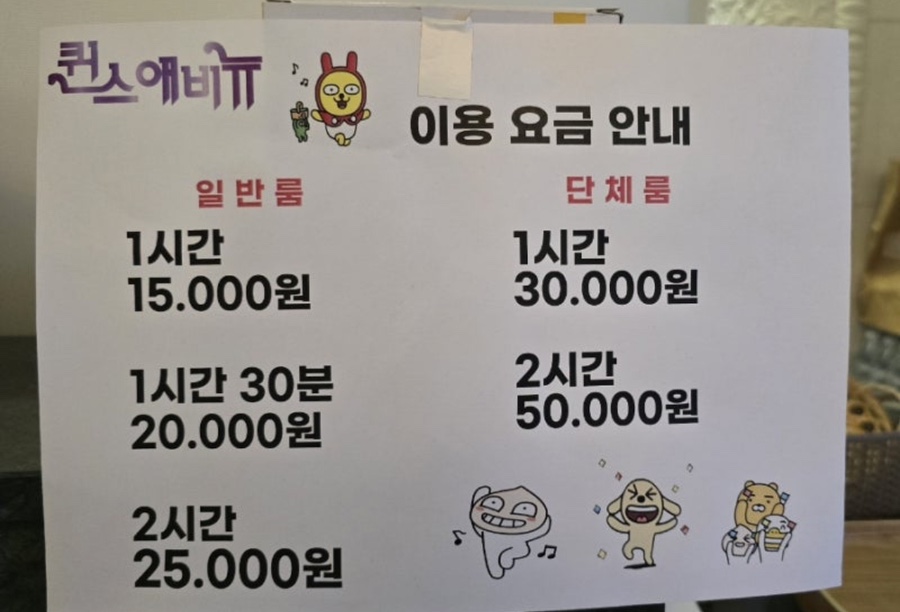 퀸스애비뉴
이용 요금 안내
일반룸
1시간
15.000원
1시간 30분
20.000원
2시간
25.000원
단체룸
1시간
30.000원
2시간
50.000원